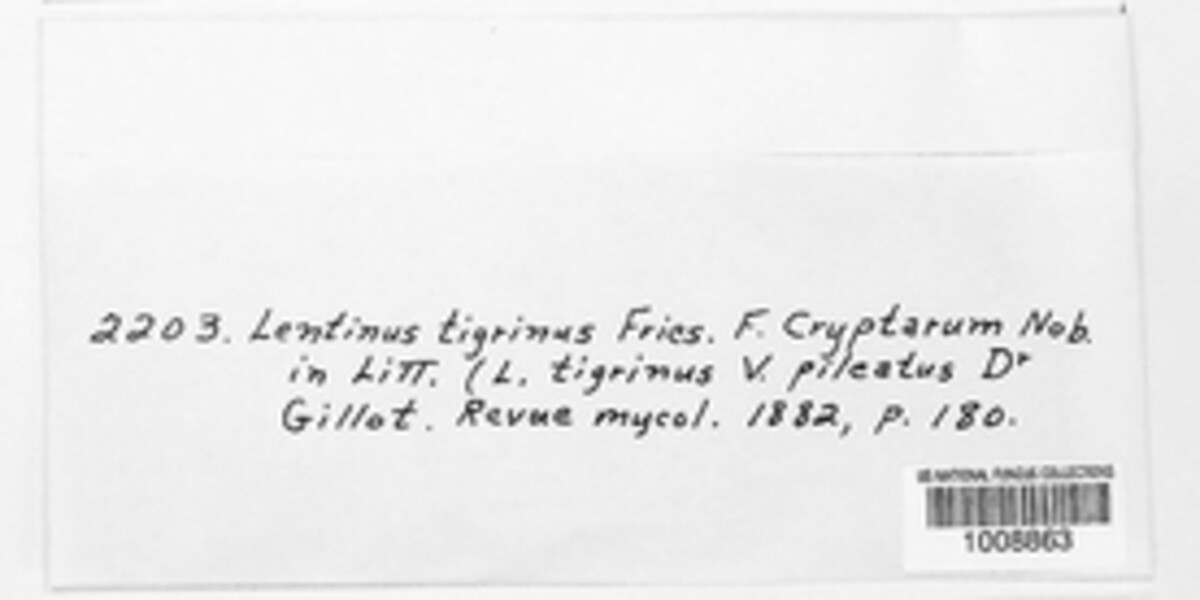 2203. Lentinus tigrinus Fries. F. Cryptarum Nob.
in Litt. (L. tigrinus V. pileatus Dr
Gillot. Revue mycol. 1882, p. 180.
US NATIONAL FUNGUS COLLECTIONS
1008863